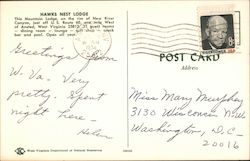 HAWKS NEST LODGE
This Mountain Lodge, on the rim of New River
Canyon, just off U.S. Route 60, and mile West
of Ansted, West Virginia 25812. 31 guest rooms
- dining room - lounge - gift shop - snack
bar and pool. Open all year.
Greetings from
W. Va. Very
pretty. Spent
night here -
Helen
POST CARD
Address
Miss Mary Murphey
3130 Wisconsin N.W.
Washington, D.C.
20016
West Virginia Department of Natural Resources